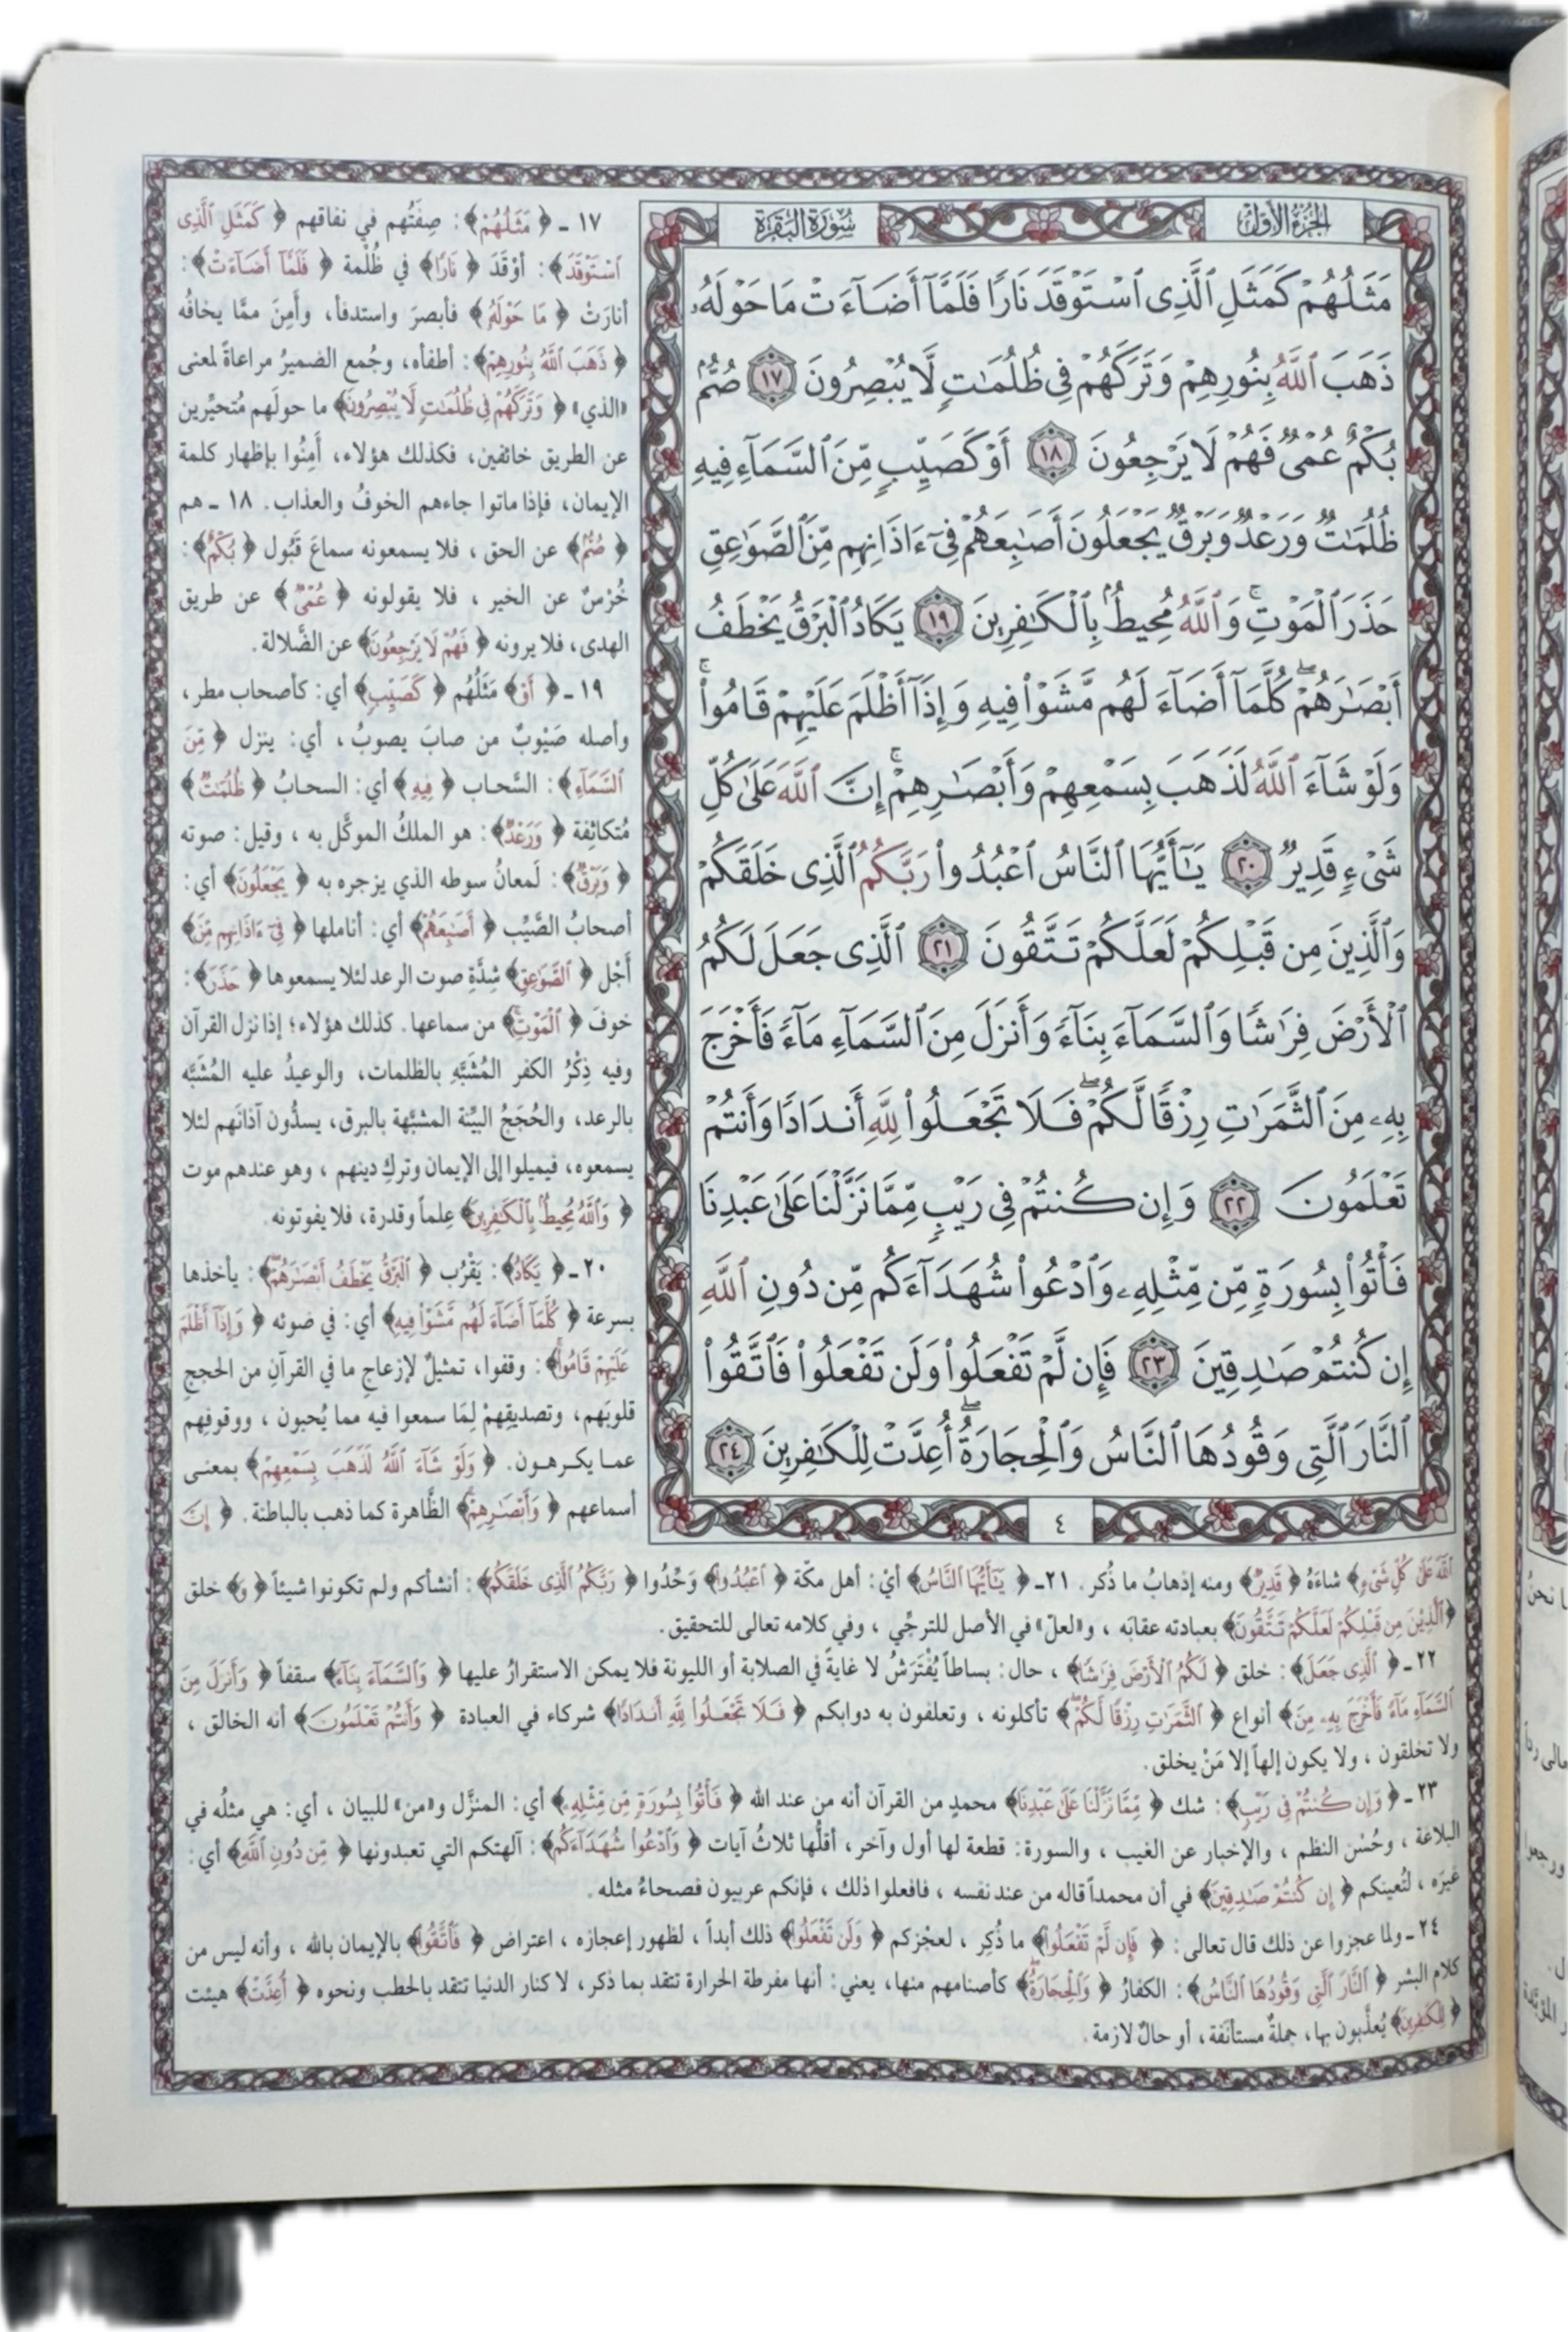 الجزء الأول
سورة البقرة
مَثَلُهُمْ كَمَثَلِ ٱلَّذِى ٱسْتَوْقَدَ نَارًا فَلَمَّآ أَضَآءَتْ مَا حَوْلَهُۥ
ذَهَبَ ٱللَّهُ بِنُورِهِمْ وَتَرَكَهُمْ فِى ظُلُمَٰتٍ لَّا يُبْصِرُونَ ١٧ صُمٌّۢ
بُكْمٌ عُمْىٌ فَهُمْ لَا يَرْجِعُونَ ١٨ أَوْ كَصَيِّبٍ مِّنَ ٱلسَّمَآءِ فِيهِ
ظُلُمَٰتٌ وَرَعْدٌ وَبَرْقٌ يَجْعَلُونَ أَصَٰبِعَهُمْ فِىٓ ءَاذَانِهِم مِّنَ ٱلصَّوَٰعِقِ
حَذَرَ ٱلْمَوْتِ ۚ وَٱللَّهُ مُحِيطٌۢ بِٱلْكَٰفِرِينَ ١٩ يَكَادُ ٱلْبَرْقُ يَخْطَفُ
أَبْصَٰرَهُمْ ۖ كُلَّمَآ أَضَآءَ لَهُم مَّشَوْا۟ فِيهِ وَإِذَآ أَظْلَمَ عَلَيْهِمْ قَامُوا۟ ۚ
وَلَوْ شَآءَ ٱللَّهُ لَذَهَبَ بِسَمْعِهِمْ وَأَبْصَٰرِهِمْ ۚ إِنَّ ٱللَّهَ عَلَىٰ كُلِّ
شَىْءٍ قَدِيرٌ ٢٠ يَٰٓأَيُّهَا ٱلنَّاسُ ٱعْبُدُوا۟ رَبَّكُمُ ٱلَّذِى خَلَقَكُمْ
وَٱلَّذِينَ مِن قَبْلِكُمْ لَعَلَّكُمْ تَتَّقُونَ ٢١ ٱلَّذِى جَعَلَ لَكُمُ
ٱلْأَرْضَ فِرَٰشًا وَٱلسَّمَآءَ بِنَآءً وَأَنزَلَ مِنَ ٱلسَّمَآءِ مَآءً فَأَخْرَجَ
بِهِۦ مِنَ ٱلثَّمَرَٰتِ رِزْقًا لَّكُمْ ۖ فَلَا تَجْعَلُوا۟ لِلَّهِ أَندَادًا وَأَنتُمْ
تَعْلَمُونَ ٢٢ وَإِن كُنتُمْ فِى رَيْبٍ مِّمَّا نَزَّلْنَا عَلَىٰ عَبْدِنَا
فَأْتُوا۟ بِسُورَةٍ مِّن مِّثْلِهِۦ وَٱدْعُوا۟ شُهَدَآءَكُم مِّن دُونِ ٱللَّهِ
إِن كُنتُمْ صَٰدِقِينَ ٢٣ فَإِن لَّمْ تَفْعَلُوا۟ وَلَن تَفْعَلُوا۟ فَٱتَّقُوا۟
ٱلنَّارَ ٱلَّتِى وَقُودُهَا ٱلنَّاسُ وَٱلْحِجَارَةُ ۖ أُعِدَّتْ لِلْكَٰفِرِينَ ٢٤
٤
١٧ ـ ﴿ مَثَلُهُمْ ﴾: صِفَتُهم في نفاقهم ﴿ كَمَثَلِ ٱلَّذِى
ٱسْتَوْقَدَ ﴾: أوْقَدَ ﴿ نَارًا ﴾ في ظُلْمة ﴿ فَلَمَّآ أَضَآءَتْ ﴾:
أنارَتْ ﴿ مَا حَوْلَهُ ﴾ فأبصرَ واستدفأ، وأَمِنَ ممَّا يخافُه
﴿ ذَهَبَ ٱللَّهُ بِنُورِهِمْ ﴾: أطفأه، وجُمع الضميرُ مراعاةً لمعنى
«الذي» ﴿ وَتَرَكَهُمْ فِى ظُلُمَٰتٍ لَّا يُبْصِرُونَ ﴾ ما حولَهم مُتحيِّرين
عن الطريق خائفين، فكذلك هؤلاء، أَمِنُوا بإظهار كلمة
الإيمان، فإذا ماتوا جاءهم الخوفُ والعذاب. ١٨ ـ هم
﴿ صُمٌّۢ ﴾ عن الحق، فلا يسمعونه سماعَ قَبُول ﴿ بُكْمٌ ﴾:
خُرْسٌ عن الخير، فلا يقولونه ﴿ عُمْىٌ ﴾ عن طريق
الهدى، فلا يرونه ﴿ فَهُمْ لَا يَرْجِعُونَ ﴾ عن الضَّلالة.
١٩ ـ ﴿ أَوْ ﴾ مَثَلُهُم ﴿ كَصَيِّبٍ ﴾ أي: كأصحاب مطر،
وأصله صَيْوِبٌ من صابَ يصوبُ، أي: ينزل ﴿ مِّنَ
ٱلسَّمَآءِ ﴾: السَّحاب ﴿ فِيهِ ﴾ أي: السحابُ ﴿ ظُلُمَٰتٌ ﴾
مُتكاثِفة ﴿ وَرَعْدٌ ﴾: هو الملكُ الموكَّل به، وقيل: صوته
﴿ وَبَرْقٌ ﴾: لَمعانُ سوطه الذي يزجره به ﴿ يَجْعَلُونَ ﴾ أي:
أصحابُ الصَّيِّب ﴿ أَصَٰبِعَهُمْ ﴾ أي: أناملها ﴿ فِىٓ ءَاذَانِهِم مِّنَ ﴾
أَجْل ﴿ ٱلصَّوَٰعِقِ ﴾ شِدَّةِ صوت الرعد لئلا يسمعوها ﴿ حَذَرَ ﴾:
خوفَ ﴿ ٱلْمَوْتِ ﴾ من سماعها. كذلك هؤلاء؛ إذا نزل القرآن
وفيه ذِكْرُ الكفر المُشَبَّهِ بالظلمات، والوعيدُ عليه المُشَبَّه
بالرعد، والحُجَجُ البيِّنة المشبَّهة بالبرق، يسدُّون آذانَهم لئلا
يسمعوه، فيميلوا إلى الإيمان وتركِ دينهم، وهو عندهم موت
﴿ وَٱللَّهُ مُحِيطٌۢ بِٱلْكَٰفِرِينَ ﴾ عِلماً وقدرة، فلا يفوتونه.
٢٠ ـ ﴿ يَكَادُ ﴾: يَقْرُب ﴿ ٱلْبَرْقُ يَخْطَفُ أَبْصَٰرَهُمْ ﴾: يأخذها
بسرعة ﴿ كُلَّمَآ أَضَآءَ لَهُم مَّشَوْا۟ فِيهِ ﴾ أي: في ضوئه ﴿ وَإِذَآ أَظْلَمَ
عَلَيْهِمْ قَامُوا۟ ﴾: وقفوا، تمثيلٌ لإزعاجِ ما في القرآنِ من الحججِ
قلوبَهم، وتصديقِهِمْ لِمَا سمعوا فيه مما يُحبون، ووقوفِهم
عما يكرهون. ﴿ وَلَوْ شَآءَ ٱللَّهُ لَذَهَبَ بِسَمْعِهِمْ ﴾ بمعنى
أسماعهم ﴿ وَأَبْصَٰرِهِمْ ﴾ الظَّاهرة كما ذهب بالباطنة. ﴿ إِنَّ
ٱللَّهَ عَلَىٰ كُلِّ شَىْءٍ ﴾ شاءَهُ ﴿ قَدِيرٌ ﴾ ومنه إذهابُ ما ذُكر. ٢١ـ ﴿ يَٰٓأَيُّهَا ٱلنَّاسُ ﴾ أيْ: أهل مكّة ﴿ ٱعْبُدُوا۟ ﴾ وَحِّدُوا ﴿ رَبَّكُمُ ٱلَّذِى خَلَقَكُمْ ﴾: أنشأكم ولم تكونوا شيئاً ﴿ وَ ﴾ خلق
﴿ ٱلَّذِينَ مِن قَبْلِكُمْ لَعَلَّكُمْ تَتَّقُونَ ﴾ بعبادته عقابَه، و«لعلّ» في الأصل للترجِّي، وفي كلامه تعالى للتحقيق.
٢٢ ـ ﴿ ٱلَّذِى جَعَلَ ﴾: خلق ﴿ لَكُمُ ٱلْأَرْضَ فِرَٰشًا ﴾، حال: بساطاً يُفْتَرَشُ لا غايةً في الصلابة أو الليونة فلا يمكن الاستقرارُ عليها ﴿ وَٱلسَّمَآءَ بِنَآءً ﴾ سقفاً ﴿ وَأَنزَلَ مِنَ
ٱلسَّمَآءِ مَآءً فَأَخْرَجَ بِهِۦ مِنَ ﴾ أنواع ﴿ ٱلثَّمَرَٰتِ رِزْقًا لَّكُمْ ﴾ تأكلونه، وتعلفون به دوابكم ﴿ فَلَا تَجْعَلُوا۟ لِلَّهِ أَندَادًا ﴾ شركاء في العبادة ﴿ وَأَنتُمْ تَعْلَمُونَ ﴾ أنه الخالق،
ولا تخلقون، ولا يكون إلهاً إلا مَنْ يخلق.
٢٣ ـ ﴿ وَإِن كُنتُمْ فِى رَيْبٍ ﴾: شك ﴿ مِّمَّا نَزَّلْنَا عَلَىٰ عَبْدِنَا ﴾ محمدٍ من القرآن أنه من عند الله ﴿ فَأْتُوا۟ بِسُورَةٍ مِّن مِّثْلِهِۦ ﴾ أي: المنزَّل و«من» للبيان، أي: هي مثلُه في
البلاغة، وحُسْن النظم، والإخبار عن الغيب، والسورة: قطعة لها أول وآخر، أقلُّها ثلاثُ آيات ﴿ وَٱدْعُوا۟ شُهَدَآءَكُم ﴾: آلهتكم التي تعبدونها ﴿ مِّن دُونِ ٱللَّهِ ﴾ أي:
غيرَه، لتُعينكم ﴿ إِن كُنتُمْ صَٰدِقِينَ ﴾ في أن محمداً قاله من عند نفسه، فافعلوا ذلك، فإنكم عربيون فصحاءُ مثله.
٢٤ ـ ولما عجزوا عن ذلك قال تعالى: ﴿ فَإِن لَّمْ تَفْعَلُوا۟ ﴾ ما ذُكِر، لعجْزكم ﴿ وَلَن تَفْعَلُوا۟ ﴾ ذلك أبداً، لظهور إعجازه، اعتراض ﴿ فَٱتَّقُوا۟ ﴾ بالإيمان بالله، وأنه ليس من
كلام البشر ﴿ ٱلنَّارَ ٱلَّتِى وَقُودُهَا ٱلنَّاسُ ﴾: الكفارُ ﴿ وَٱلْحِجَارَةُ ﴾ كأصنامهم منها، يعني: أنها مفرطة الحرارة تتقد بما ذكر، لا كنار الدنيا تتقد بالحطب ونحوه ﴿ أُعِدَّتْ ﴾ هيئت
﴿ لِلْكَٰفِرِينَ ﴾ يُعذَّبون بها، جملةٌ مستأنَفة، أو حالٌ لازمة.